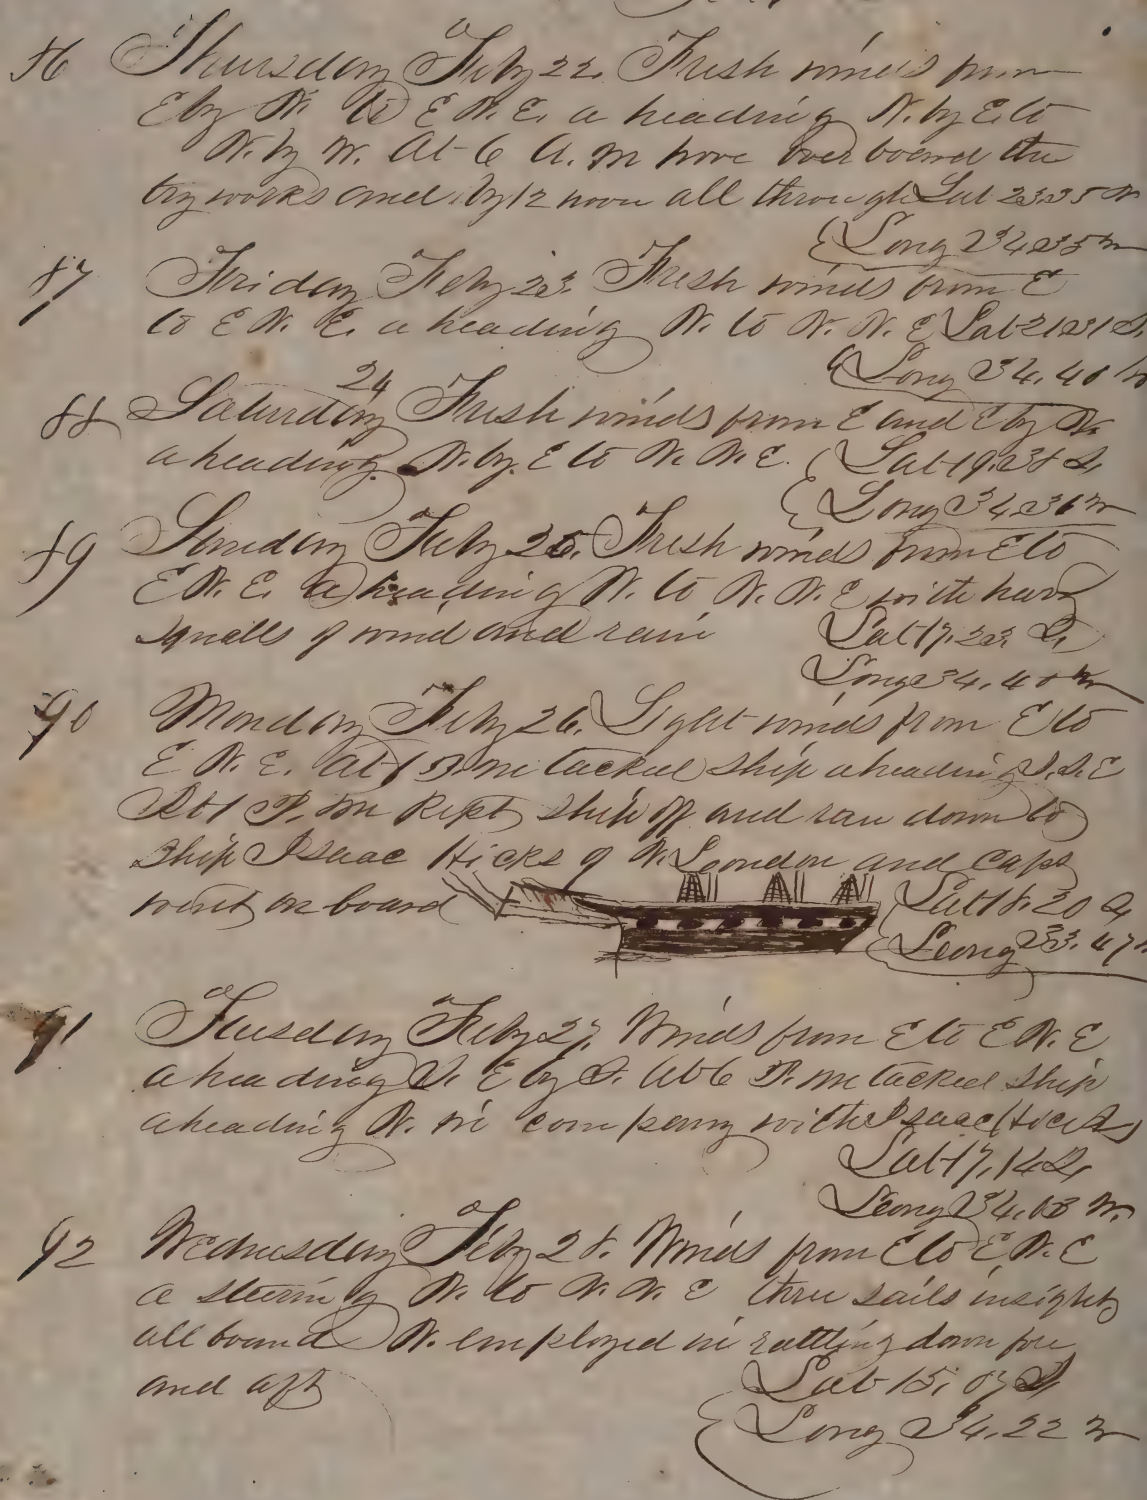 86 Thursday Feby 22. Fresh winds from
E by N. to E N. E. a heading N. by E. to
N. by W. At 6 A. M hove over board the
try works and by 12 noon all through Lat 23.35 S
Long 34.35 W
87 Friday Feby 23. Fresh winds from E
to E N. E. a heading N. to N. N. E Lat 21.31 S.
Long 34.40 W
88 Saturday 24 Fresh winds from E and E by N.
a heading N. by. E to N. N. E. Lat 19.38 S.
Long 34.36 W
89 Sunday Feby 25. Fresh winds from E to
E N. E. a heading N. to N. N. E with havy
squalls of wind and rain Lat 17.23 S.
Long 34.40 W
90 Monday Feby 26. Light winds from E to
E N. E. At 1 P. m tacked ship a heading S. S. E
At 1 P. m Kept ship off and ran down to
Ship Isaac Hicks of N. Leondon and Capt
went on board Lat 18.20 S
Leong 33.47
91 Tuesday Feby 27. Winds from E to E N. E
a heading S. E by S. At 6 P. m tacked ship
a heading N. in company with Isaac Hicks
Lat 17.14 S.
Leong 34.03 W.
92 Wednesday Feby 28. Winds from E to E N. E
a steering N. to N. N. E three sails in sight
all bound N. employed in rattling down fore
and aft Lat 15.07 S
Long 34.22 W